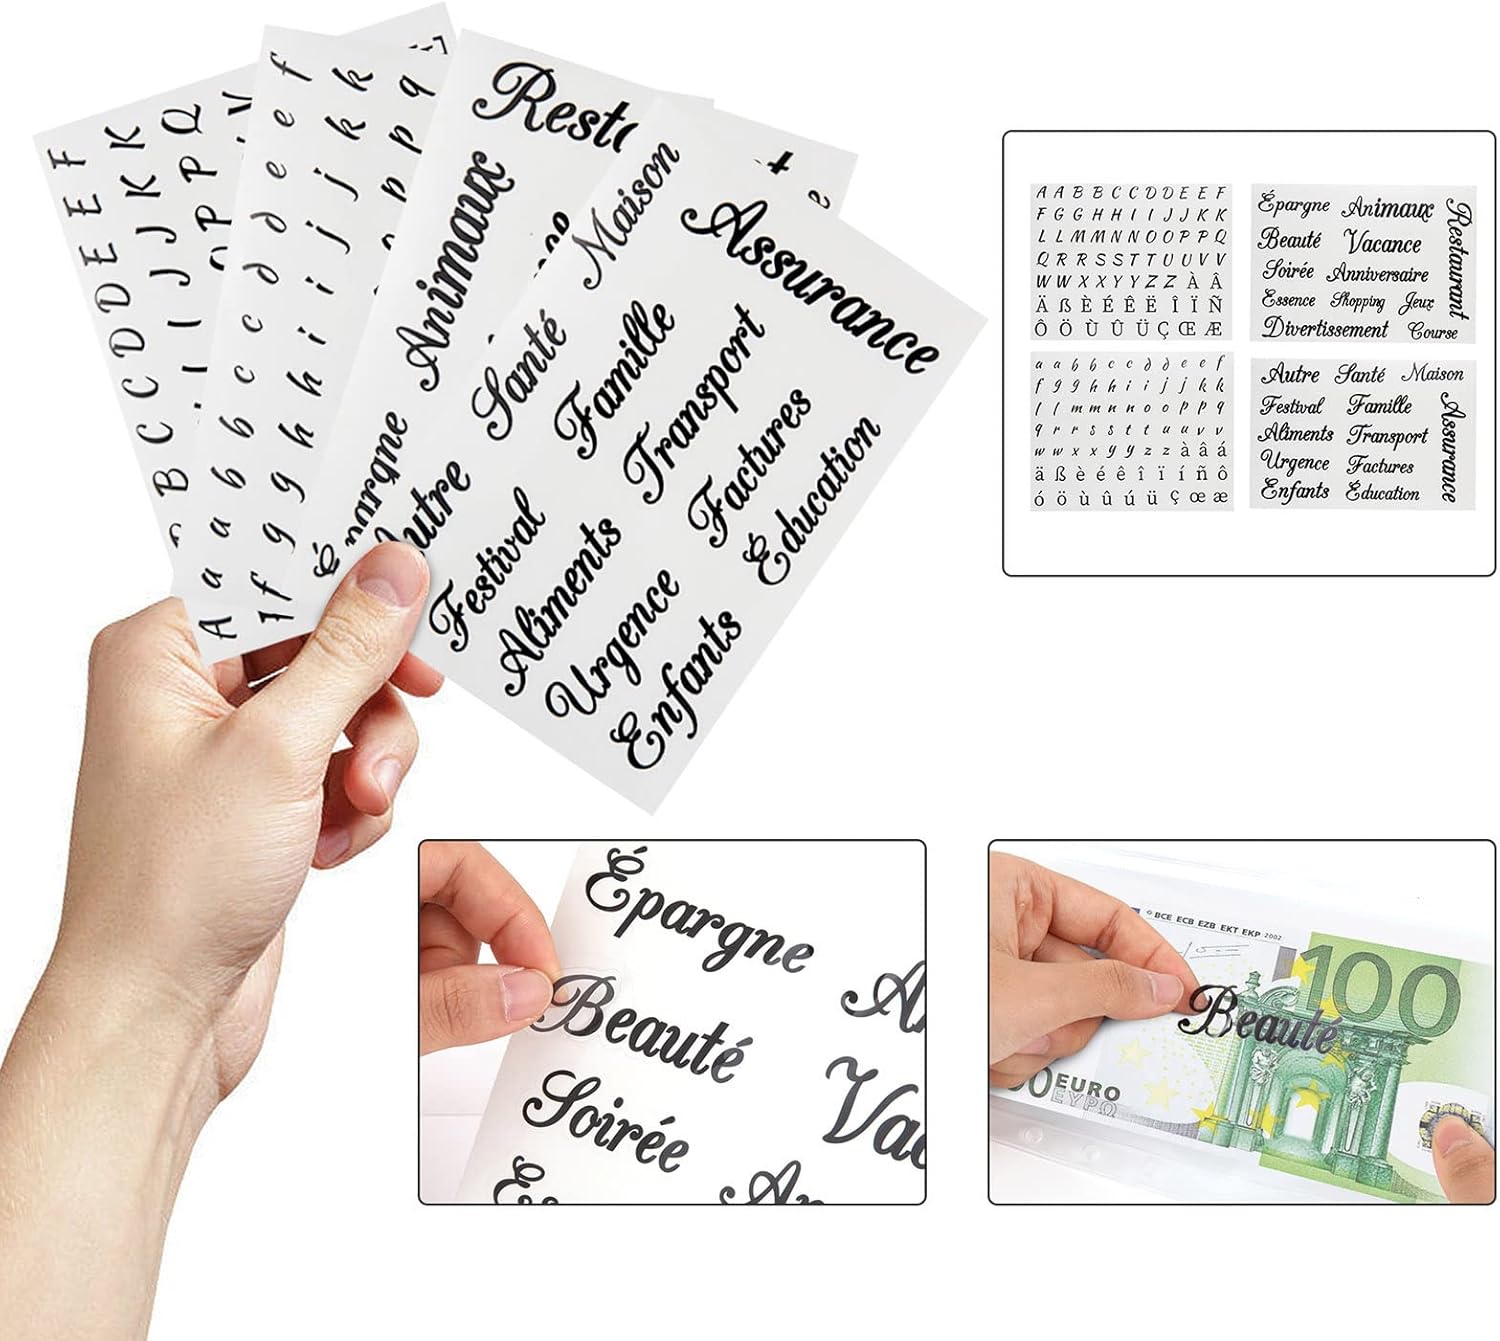 A B C C D D E E F
I J J K K
P P Q
A a a b b c c d d e e f
f g g h h i i j j k k
p p q
Animaux
Épargne
Autre
Santé
Maison
Festival
Famille
Aliments
Transport
Urgence
Factures
Enfants
Éducation
Assurance
A A B B C C D D E E F
F G G H H I I J J K K
L L M M N N O O P P Q
Q R R S S T T U U V V
W W X X Y Y Z Z À Â
Ä ß È É Ê Ë Î Ï Ñ
Ô Ö Ù Û Ü Ç Œ Æ
Épargne Animaux
Beauté Vacance
Soirée Anniversaire
Essence Shopping Jeux
Divertissement Course
Restaurant
a a b b c c d d e e f
f g g h h i i j j k k
l l m m n n o o p p q
q r r s s t t u u v v
w w x x y y z z à â á
ä ß è é ê î ï í ñ ô
ó ö ù û ú ü ç œ æ
Autre Santé Maison
Festival Famille
Aliments Transport
Urgence Factures
Enfants Éducation
Assurance
Épargne
Beauté
Soirée
© BCE ECB EZB EKT EKP 2002
100
Beauté
EURO
ΕΥΡΩ